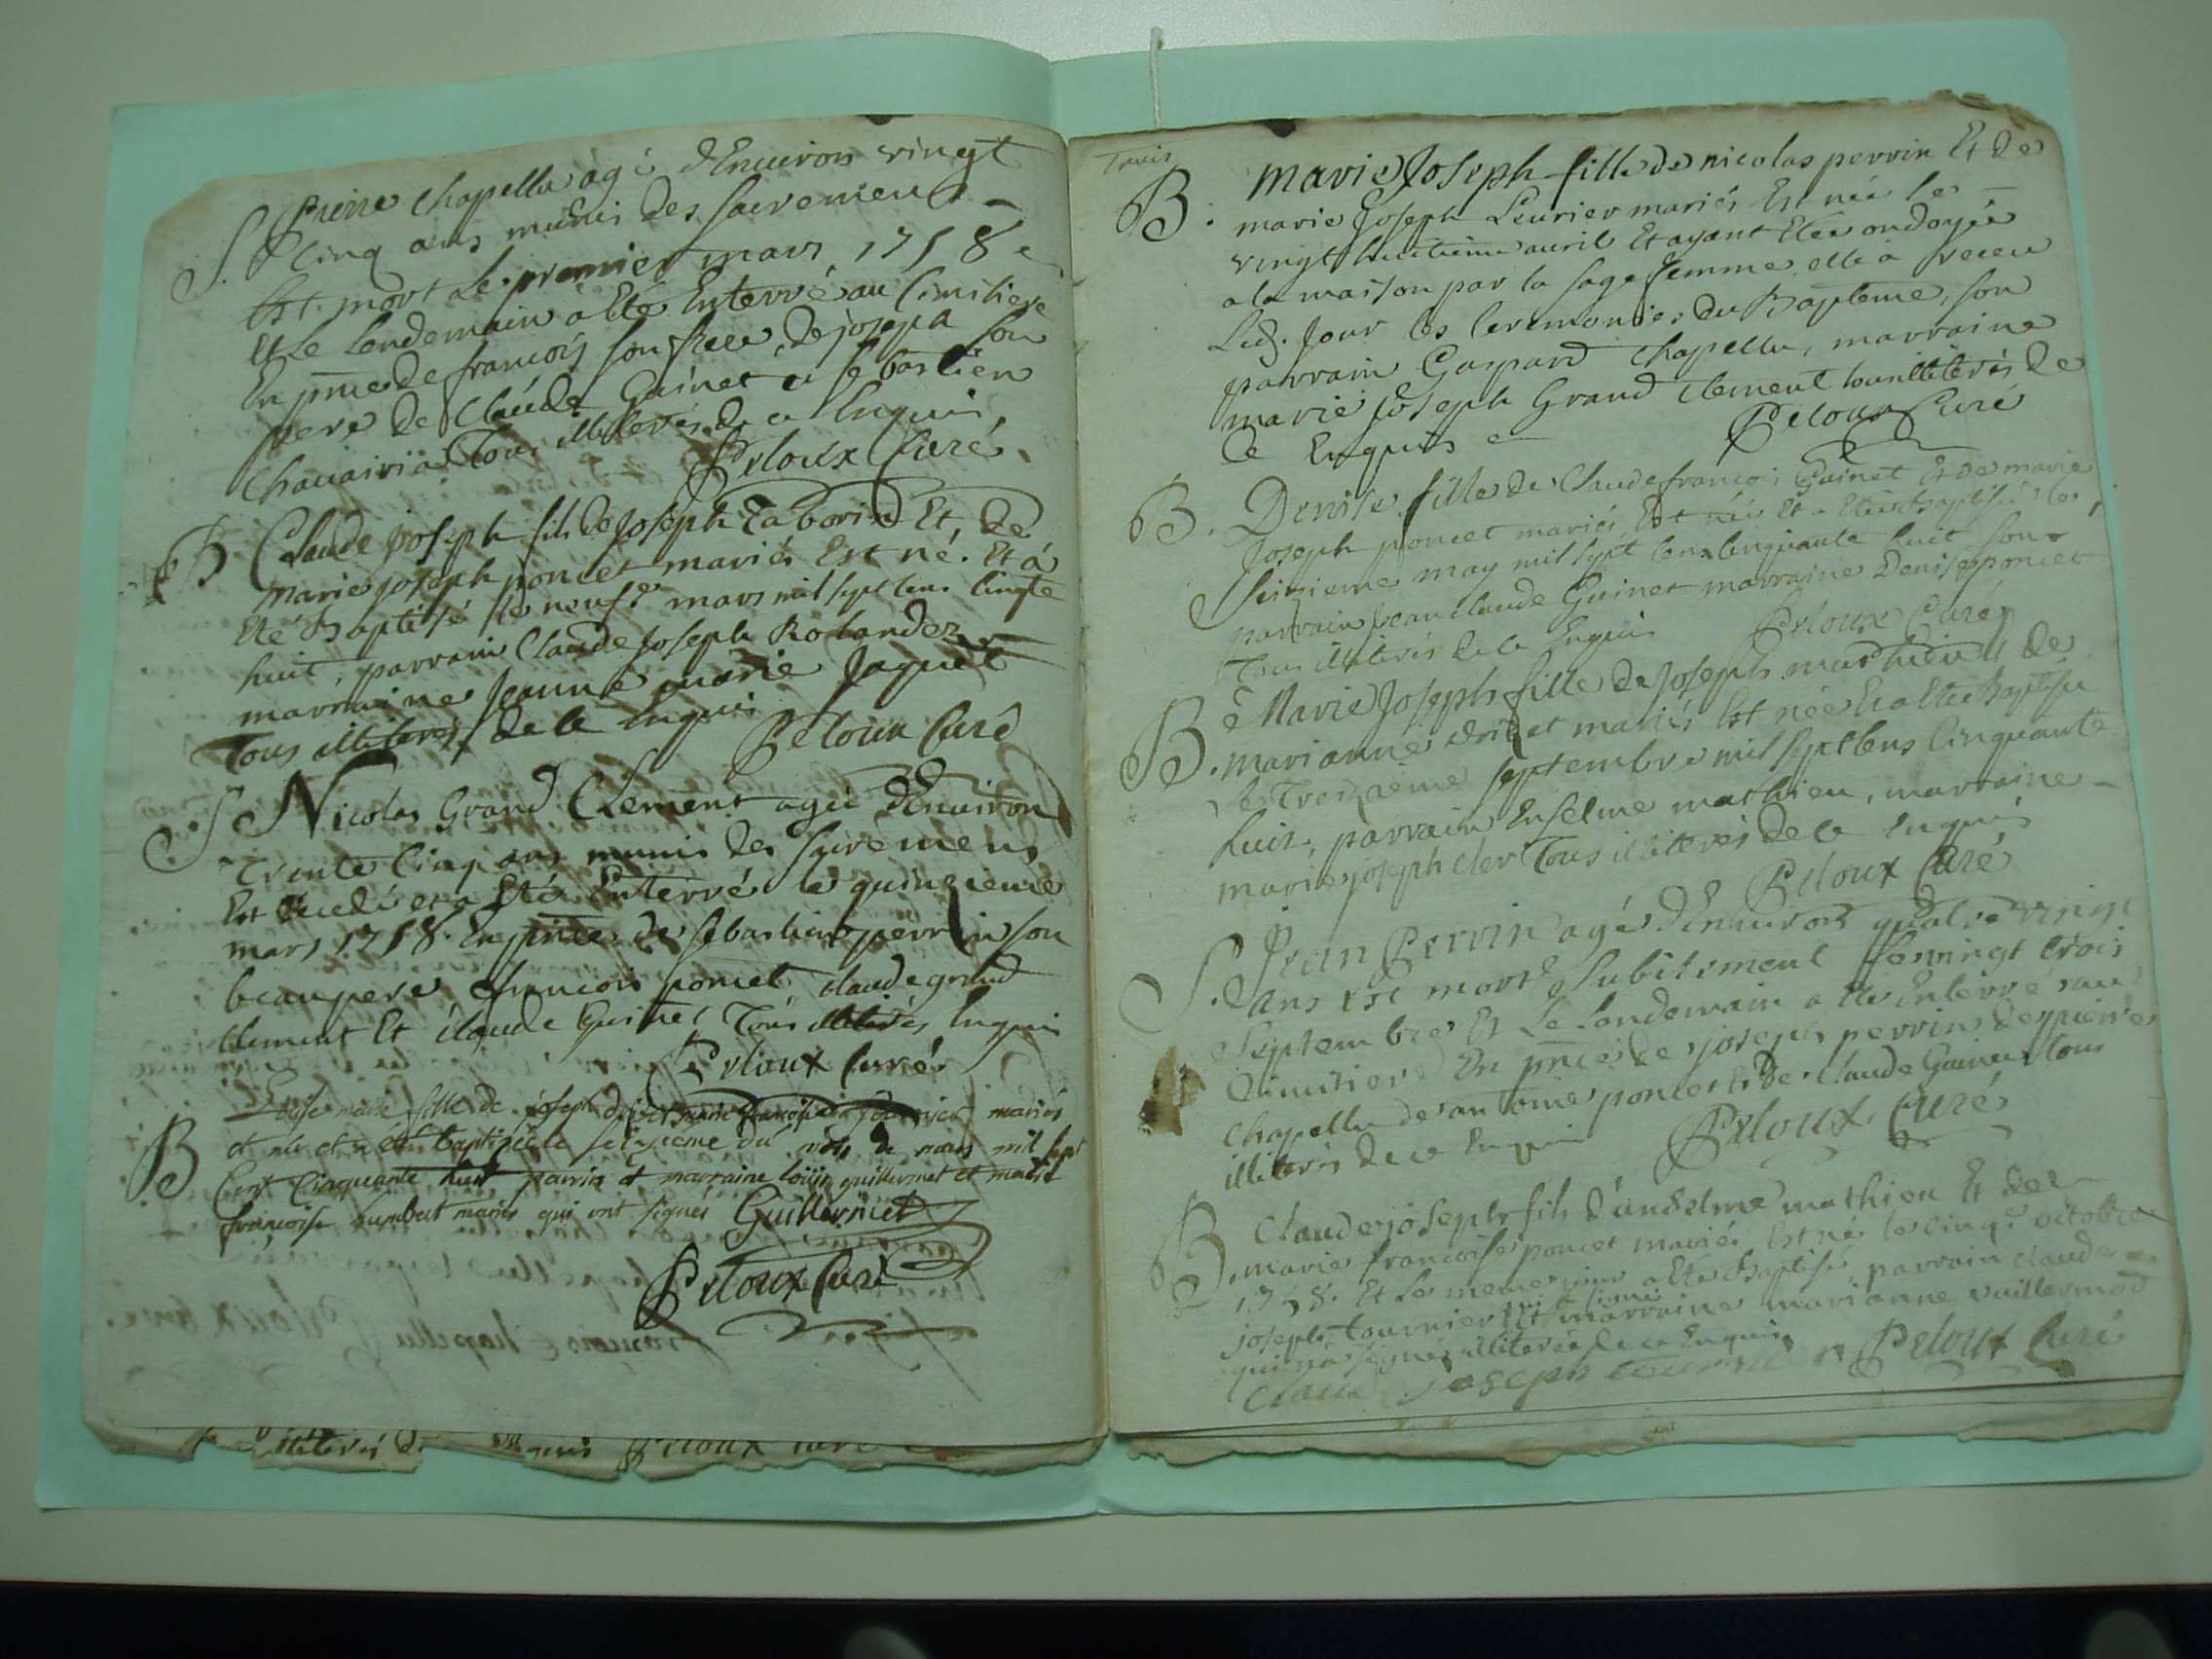 S. Pierre Chapellu agé d'Enuiron vingt
Cinq ans munis des sacremens
Est mort le premier mars 1758
Et le Lendemain a Eté Enterré au Cimitiere
En pnce de françois son frere, de joseph son
pere de Claude Guinet et sebastien
Chauairia Tous illiterés de ce
Peloux Curé
B Claude joseph fils de Joseph Laborid Et de
marie joseph poncet mariés Est né. Et à
Eté Baptisé le neufe mars mil sept cens cinqte
huit, parrain Claude Joseph Rolandez
marraine jeanne marie Jaquet
Tous illiterés de ce
Peloux Curé
S Nicolas Grand Clement agée d'Enuiron
Trente Cinq ans munis des sacremens
Est decedé et a Eté Enterré le quinzieme
mars 1758. En pnce de sebastien perrin son
beaupere françois poncet claude grand
Clement Et Claude Guinet Tous illiterés
Peloux Curé
B marie fille de joseph mariés
et née et a été baptisée le seizieme du mois de mars mil sept
Cent Cinquante huit parrin et marraine louis guillermet et marie
françoise humbert mariés qui ont signés Guillermet
Peloux Curé
françois Chapellu Peloux
illiterés de Peloux curé
Trois
B. marie Joseph fille de nicolas perrin Et de
marie Joseph Leurier mariés Est née le
vingt huitieme auril Et ayant Etée ondoyée
a la maison par la sage femme elle à receu
Led. Jour les Ceremonies du Bapteme, son
parrain Gaspard Chapellu, marraine
marie joseph Grand Clement tous illiterés de
Ce
Peloux Curé
B. Denise fille de Claude françois Guinet Et de marie
Joseph poncet mariés Est née Et a Etée Baptisée le
seizieme may mil sept cens cinquante huit son
parrain jean claude Guinet marraine Denise poncet
Tous illiterés de ce Peloux Curé
B. Marie Joseph fille de Joseph mathieu Et de
marianne mariés Est née Et a Etée Baptisée
le Treizieme septembre mil sept cens Cinquante
huit, parrain Enselme mathieu, marraine
marie joseph Tous illiterés de ce
Peloux Curé
S. Jean Perrin agé d'Enuiron quatre vingt
ans Est mort subitement le vingt trois
septembre Et Le Lendemain a Eté Enterré au
Cimitiere En pnce de joseph perrin de pierre
Chapellu de antoine poncet Et de Claude Guinet tous
illiterés de ce Peloux Curé
B. Claude joseph fils d'anselme mathieu Et de
marie francoise poncet mariés Est né le cinqe octobre
1758. Et le meme jour a Eté Baptisé parrain claude
joseph Tournier qui a signé Et marraine marianne vuillermod
qui n'a signé illiterée de ce
Claude joseph Tournier Peloux Curé